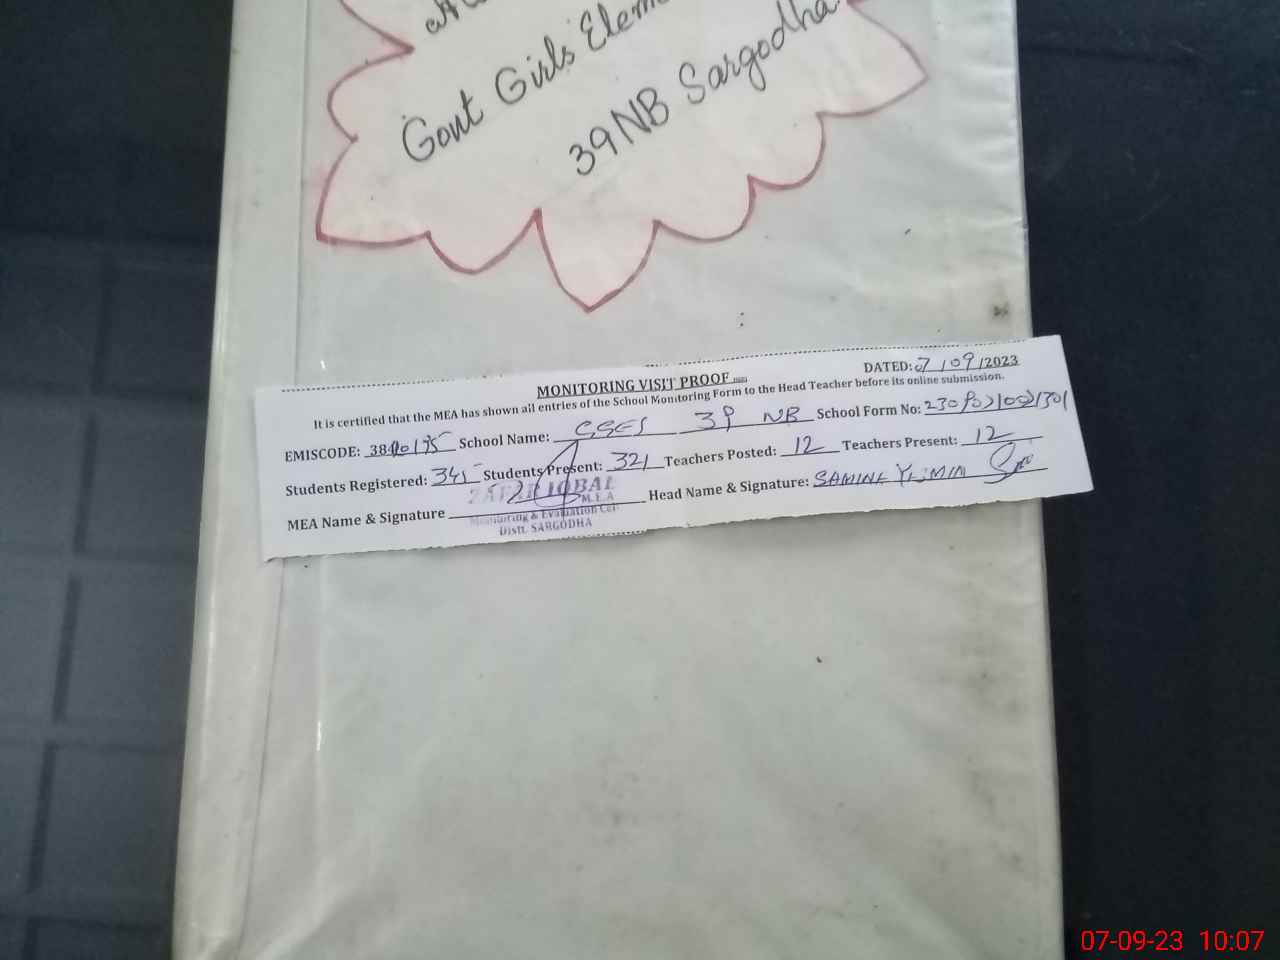 Govt Girls Elem
39 NB Sargodha
MONITORING VISIT PROOF
DATED: 07/09/2023
It is certified that the MEA has shown all entries of the School Monitoring Form to the Head Teacher before its online submission.
EMISCODE: School Name: GGES 39 NB School Form No:
Students Registered: 345 Students Present: 321 Teachers Posted: 12 Teachers Present: 12
MEA Name & Signature Head Name & Signature:
ZAFAR IQBAL
M.E.A
Monitoring & Evaluation Cell
Distt. SARGODHA
07-09-23 10:07